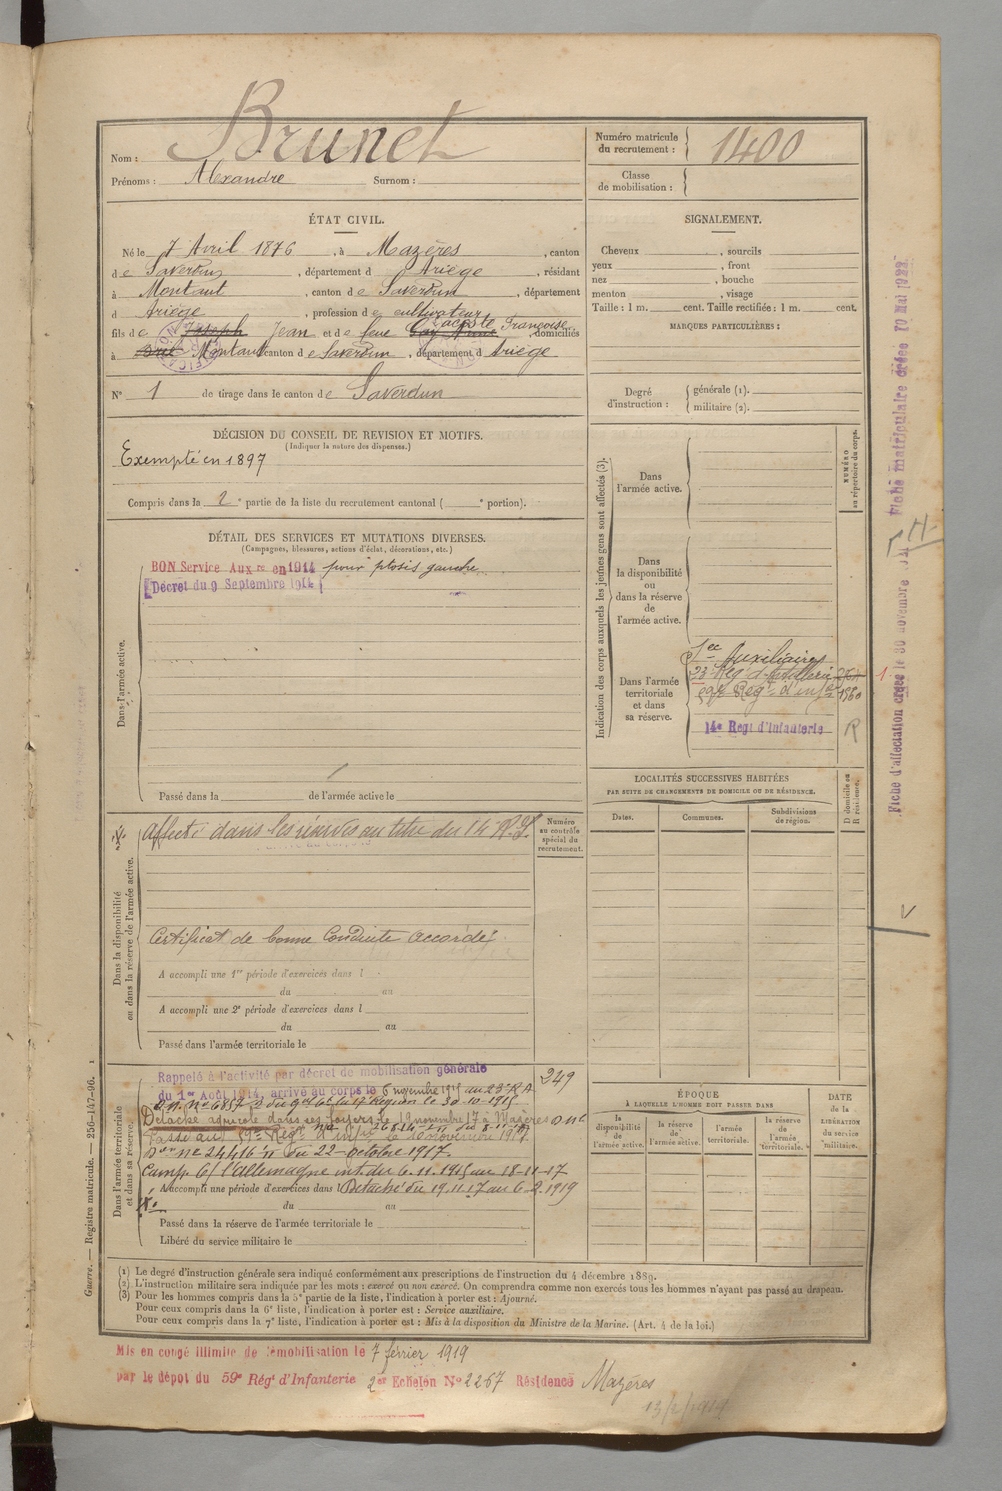 Nom : Brunet
Prénoms : Alexandre Surnom :
Numéro matricule du recrutement : 1400
Classe de mobilisation :
ÉTAT CIVIL.
Né le 7 Avril 1876, à Mazères, canton
de Saverdun, département d Ariège, résidant
à Montaut, canton de Saverdun, département
d Ariège, profession de cultivateur
fils de Joseph Jean et de feue Lacoste Françoise, domiciliés
à Montaut canton de Saverdun, département d'Ariège
N° 1 de tirage dans le canton de Saverdun
DÉCISION DU CONSEIL DE REVISION ET MOTIFS.
(Indiquer la nature des dispenses.)
Exempté en 1897
Compris dans la 2e partie de la liste du recrutement cantonal ( e portion).
DÉTAIL DES SERVICES ET MUTATIONS DIVERSES.
(Campagnes, blessures, actions d'éclat, décorations, etc.)
Dans l'armée active.
BON Service Aux re en 1914 pour ptosis gauche
Décret du 9 Septembre 1914
Passé dans la de l'armée active le
Dans la disponibilité ou dans la réserve de l'armée active.
Affecté dans les réserves au titre du 14e R.I.
Numéro au contrôle spécial du recrutement.
Certificat de bonne Conduite accordé
A accompli une 1re période d'exercices dans l
du au
A accompli une 2e période d'exercices dans l
du au
Passé dans l'armée territoriale le
Dans l'armée territoriale et dans sa réserve.
Rappelé à l'activité par décret de mobilisation générale
du 1er Août 1914, arrivé au corps le 6 novembre 1915 au 23e R A
249
D.M. N° 6857 du Gal Ct la 17e Région le 30-10-1915
Détaché agricole dans ses foyers le 19 novembre 17 à Mazères D.M.
Passé au 59e Regt d'infie le 18 novembre 1917.
Don N° 24416 du 22 octobre 1917.
Camp. c/ l'Allemagne int. du 6.11.1915 au 18-11-17
A accompli une période d'exercices dans l Détaché du 19.11.17 au 6-2-1919
du au
Passé dans la réserve de l'armée territoriale le
Libéré du service militaire le
SIGNALEMENT.
Cheveux , sourcils
yeux , front
nez , bouche
menton , visage
Taille : 1 m. cent. Taille rectifiée : 1 m. cent.
MARQUES PARTICULIÈRES :
Degré d'instruction : générale (1).
militaire (2).
Indication des corps auxquels les jeunes gens sont affectés (3).
NUMÉRO au répertoire du corps.
Dans l'armée active.
Dans la disponibilité ou dans la réserve de l'armée active.
Dans l'armée territoriale et dans sa réserve.
Sce Auxiliaires
23e Reg d'Artillerie
59e Regt d'infie 1560
14e Regt d'Infanterie R
LOCALITÉS SUCCESSIVES HABITÉES
PAR SUITE DE CHANGEMENTS DE DOMICILE OU DE RÉSIDENCE.
D domicile ou R résidence.
Dates. Communes. Subdivisions de région.
ÉPOQUE
À LAQUELLE L'HOMME DOIT PASSER DANS
la disponibilité de l'armée active.
la réserve de l'armée active.
l'armée territoriale.
la réserve de l'armée territoriale.
DATE de la LIBÉRATION du service militaire.
(1) Le degré d'instruction générale sera indiqué conformément aux prescriptions de l'instruction du 4 décembre 1889.
(2) L'instruction militaire sera indiquée par les mots : exercé ou non exercé. On comprendra comme non exercés tous les hommes n'ayant pas passé au drapeau.
(3) Pour les hommes compris dans la 5e partie de la liste, l'indication à porter est : Ajourné.
Pour ceux compris dans la 6e liste, l'indication à porter est : Service auxiliaire.
Pour ceux compris dans la 7e liste, l'indication à porter est : Mis à la disposition du Ministre de la Marine. (Art. 4 de la loi.)
Guerre. — Registre matricule. — 256-147-96.
Mis en congé illimité de démobilisation le 7 février 1919
par le dépôt du 59e Régt d'Infanterie 2er Echelon N° 2267 Résidence Mazères
13/2/1919
Fiche d'affectation créée le 30 novembre
Fiche matriculaire créée 10 Mai 1922